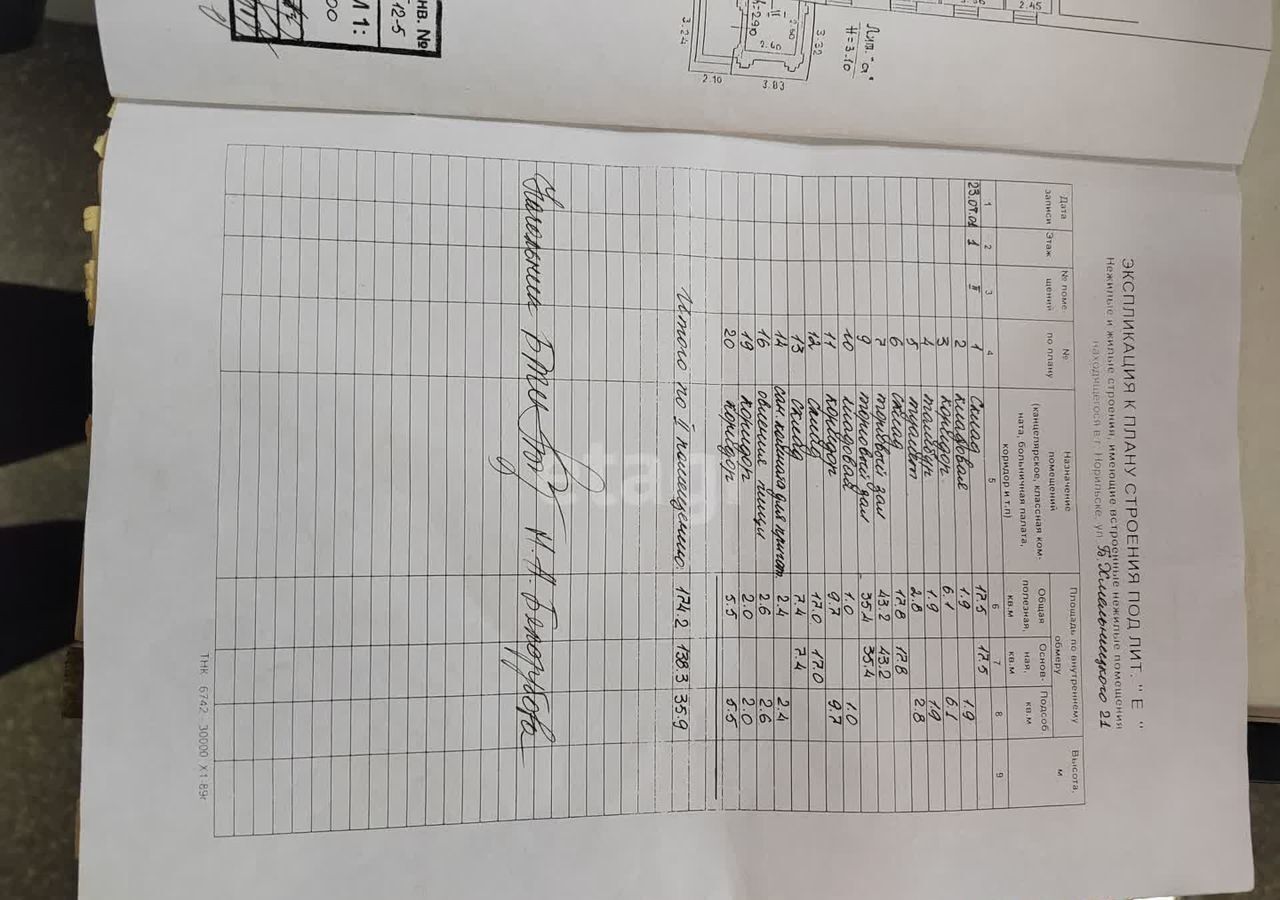 ЭКСПЛИКАЦИЯ К ПЛАНУ СТРОЕНИЯ ПОД ЛИТ. " Е "
Нежилые и жилые строения, имеющие встроенные нежилые помещения
находящегося в г. Норильске, ул. Б Хмельницкого 21
Дата записи
Этаж
№ помещений
№ по плану
Назначение помещений (канцелярское, классная комната, больничная палата, коридор и т.п)
Площадь по внутреннему обмеру
Общая полезная, кв.м
Основная, кв.м
Подсоб кв.м
Высота, м
1 2 3 4 5 6 7 8 9
23.07.01 1 II 1 Склад 17.5 17.5
2 кладовая 1.9 1.9
3 коридор 6.1 6.1
4 тамбур 1.9 1.9
5 туалет 2.8 2.8
6 склад 17.8 17.8
7 торговый зал 43.2 43.2
9 торговый зал 35.4 35.4
10 кладовая 1.0 1.0
11 коридор 9.7 9.7
12 склад 17.0 17.0
13 склад 7.4 7.4
14 сан. комната для пригот. 2.4 2.4
16 овления пищи 2.6 2.6
19 коридор 2.0 2.0
20 коридор 5.5 5.5
Итого по II помещению: 174.2 138.3 35.9
Начальник БТИ
ТНК 6742 30000 Х1-89г
etagi
Лит. "а"
H=3.10
3.32
2.60
2.60
II
h=290
3.24
2.10
3.83
2.45
НВ. №
12-5
М 1:
00